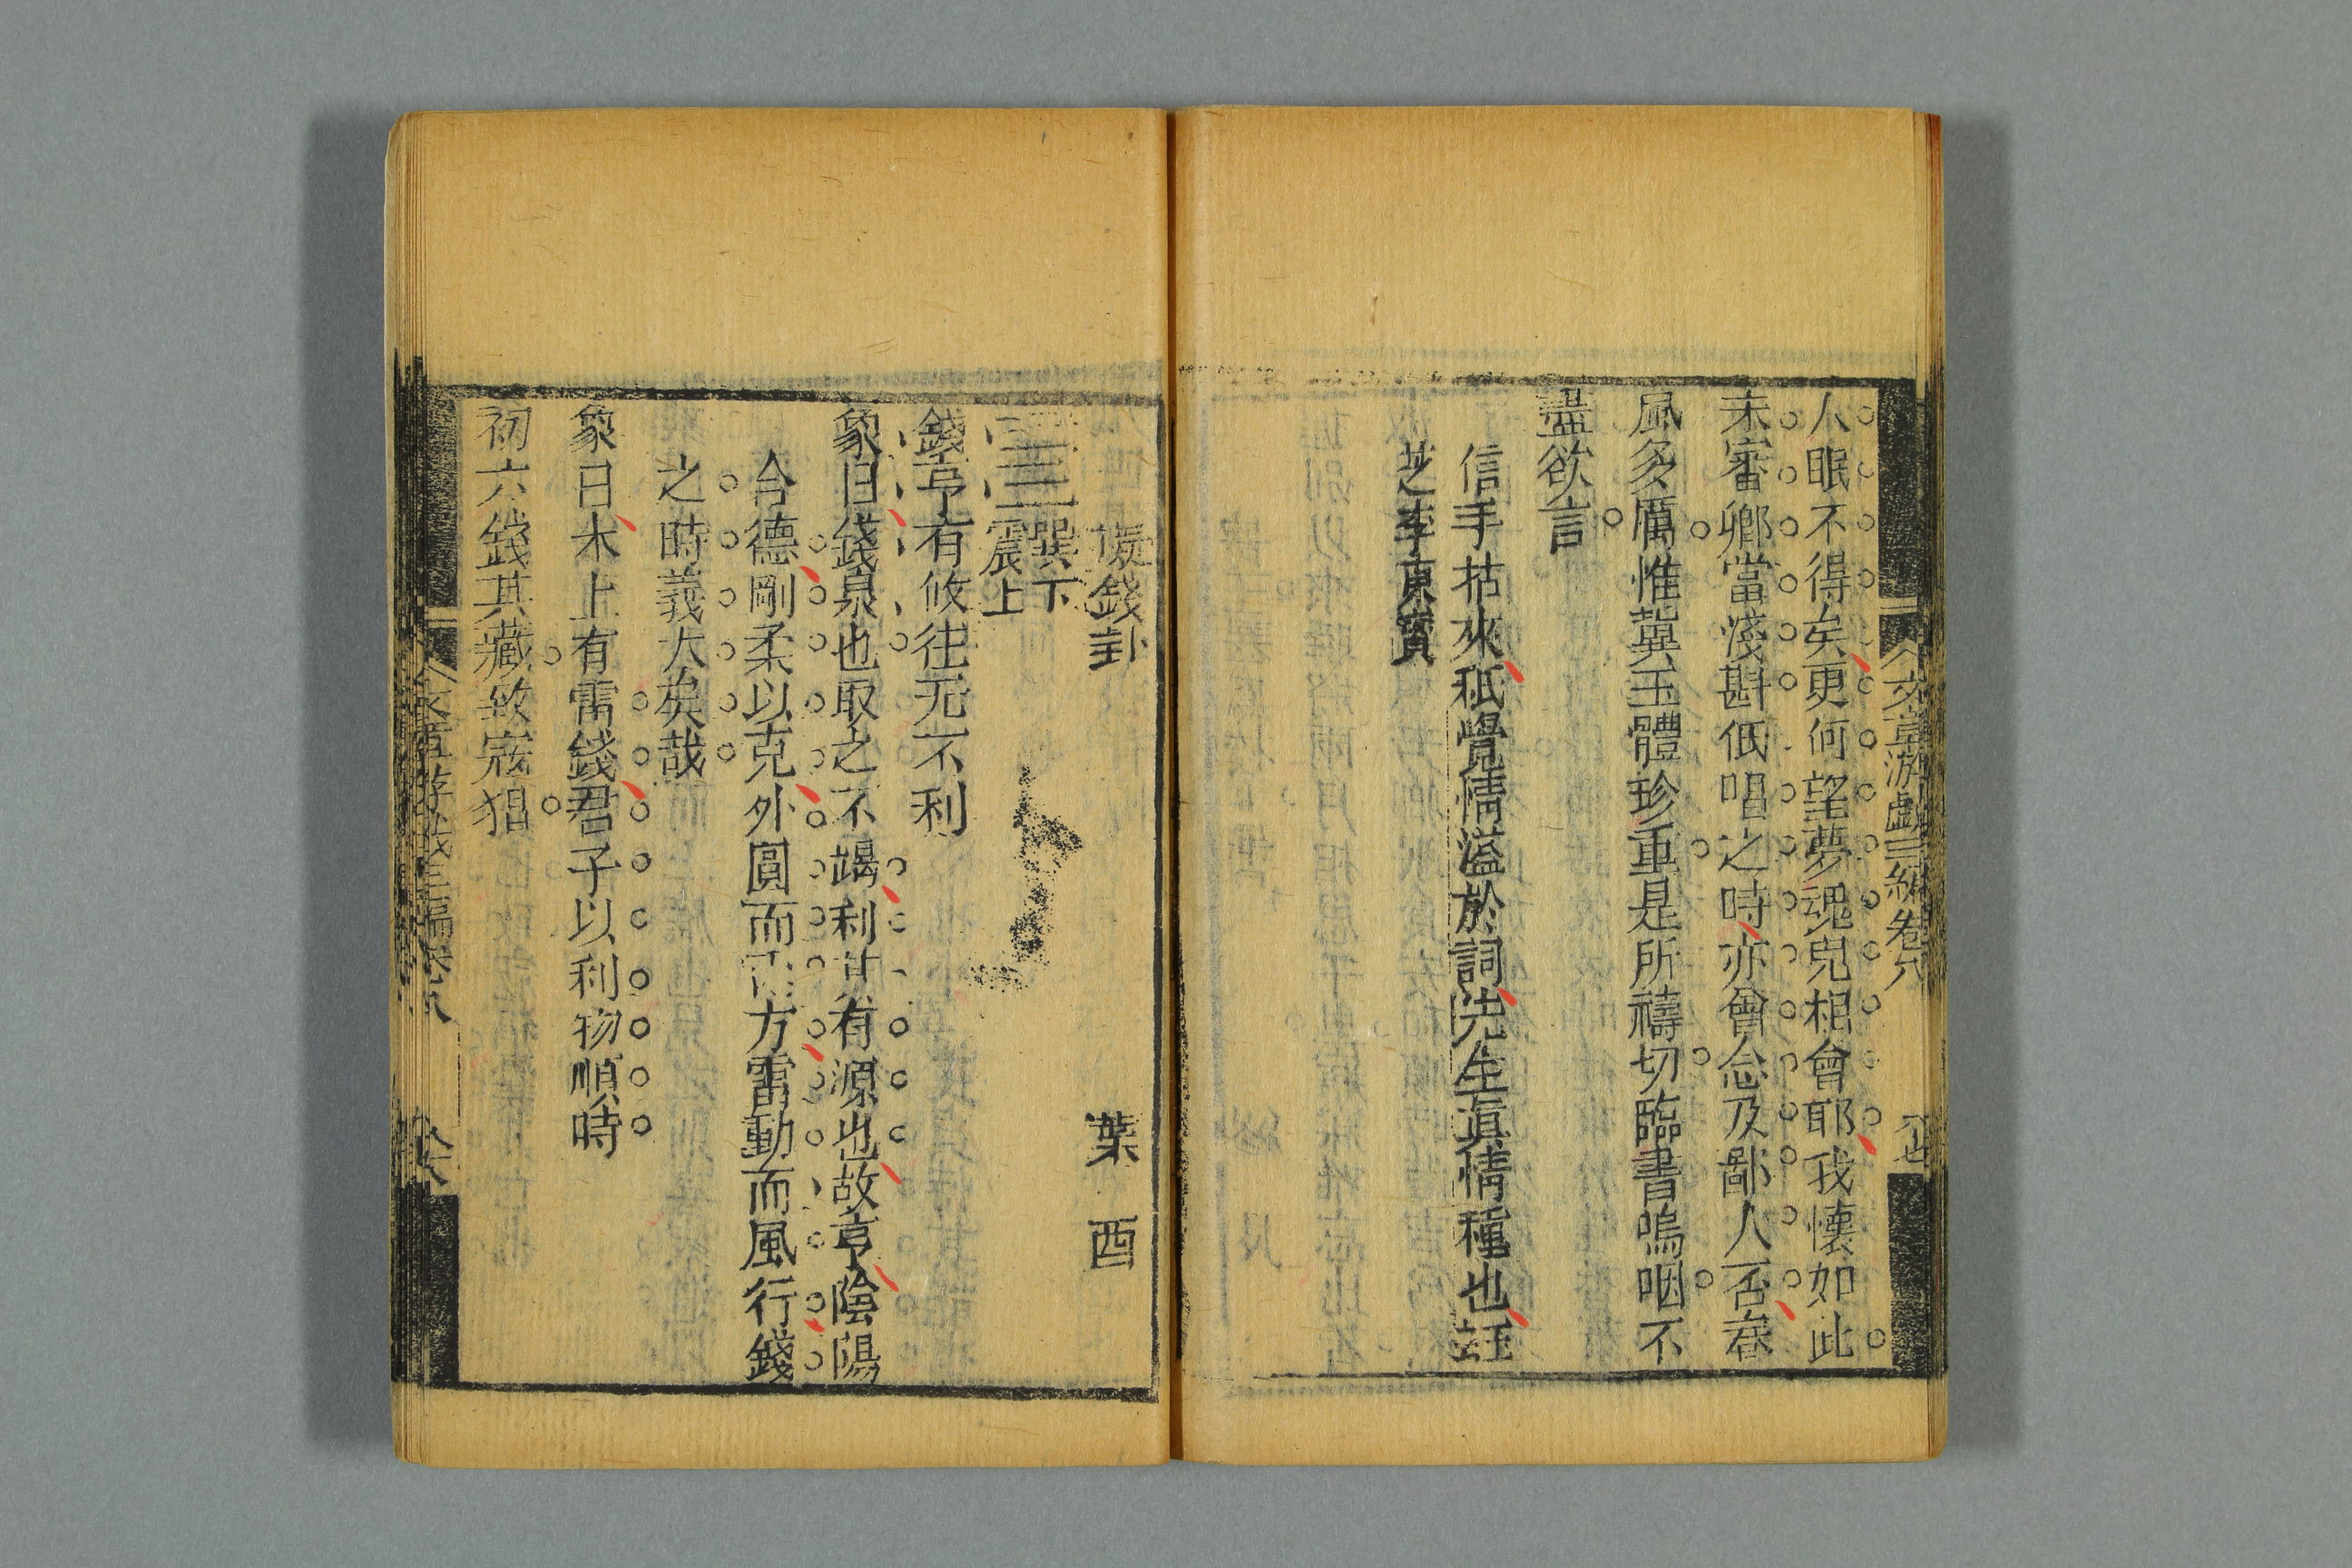 文章游戲三編卷八
人眠不得矣更何望夢魂兒相會耶我懷如此
未審卿當淺斟低唱之時亦曾念及鄙人否春
風多厲惟冀玉體珍重是所禱切臨書嗚咽不
盡欲言
信手拈來秪覺情溢於詞先生眞情種也
芝李東寶
擬錢卦 葉酉
巽下
震上
錢亨有攸往无不利
彖曰錢泉也取之不竭利其有源也故亨陰陽
合德剛柔以克外圓而內方雷動而風行錢
之時義大矣哉
象曰木上有雷錢君子以利物順時
初六錢其藏致寇猖
文章游戲三編卷八